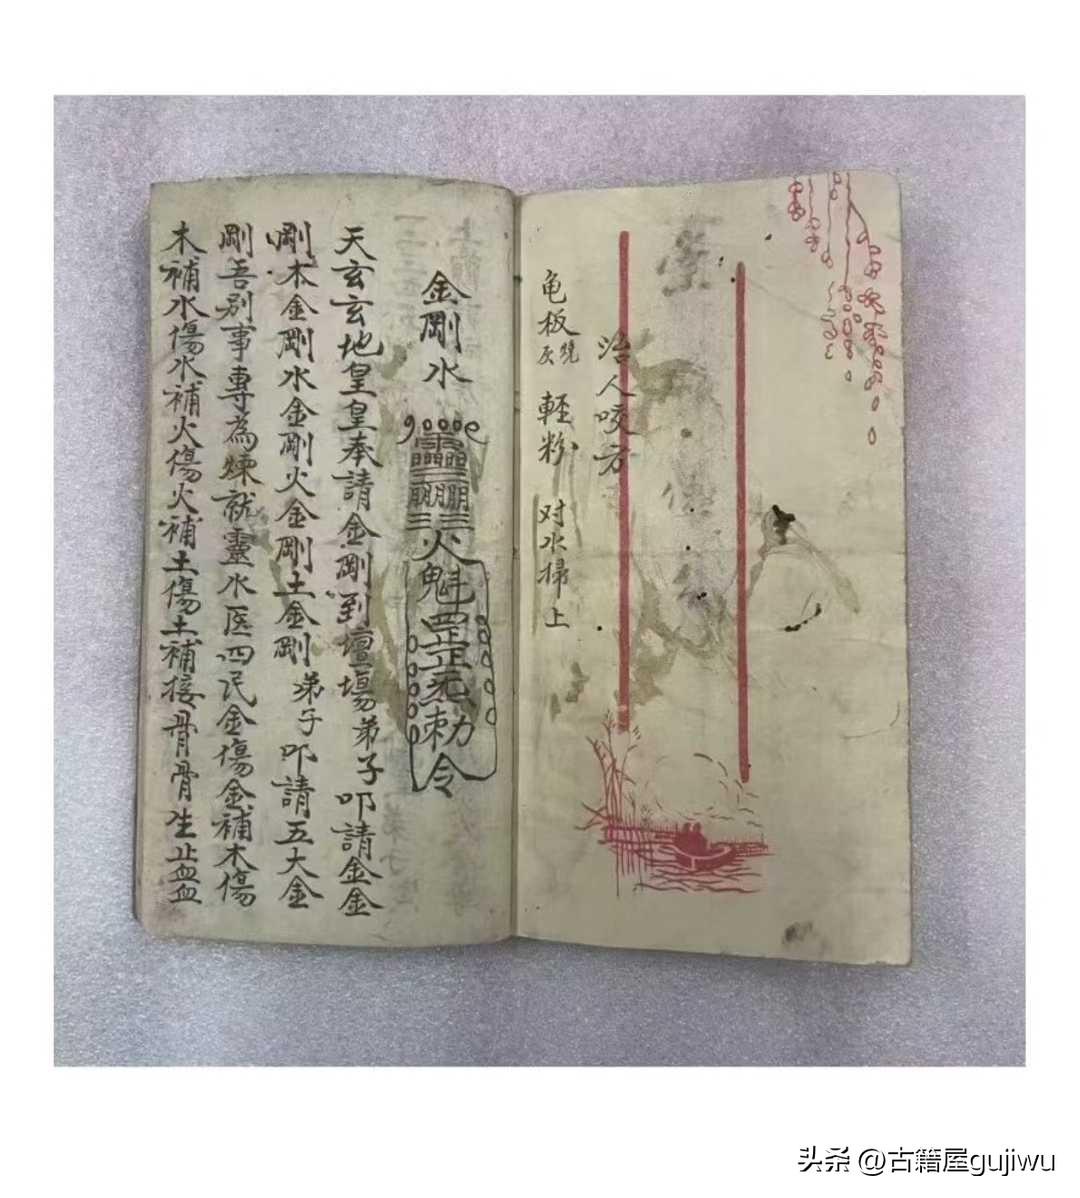 治人咬方
龟板 烧灰 輕粉 对水搽上
金剛水
火魁罡 勅令
天玄玄地皇皇奉請金剛到壇場弟子叩請金金
剛木金剛水金剛火金剛土金剛弟子叩請五大金
剛吾別事專為煉就靈水医四民金傷金補木傷
木補水傷水補火傷火補土傷土補接骨骨生止血血
头条 @古籍屋gujiwu